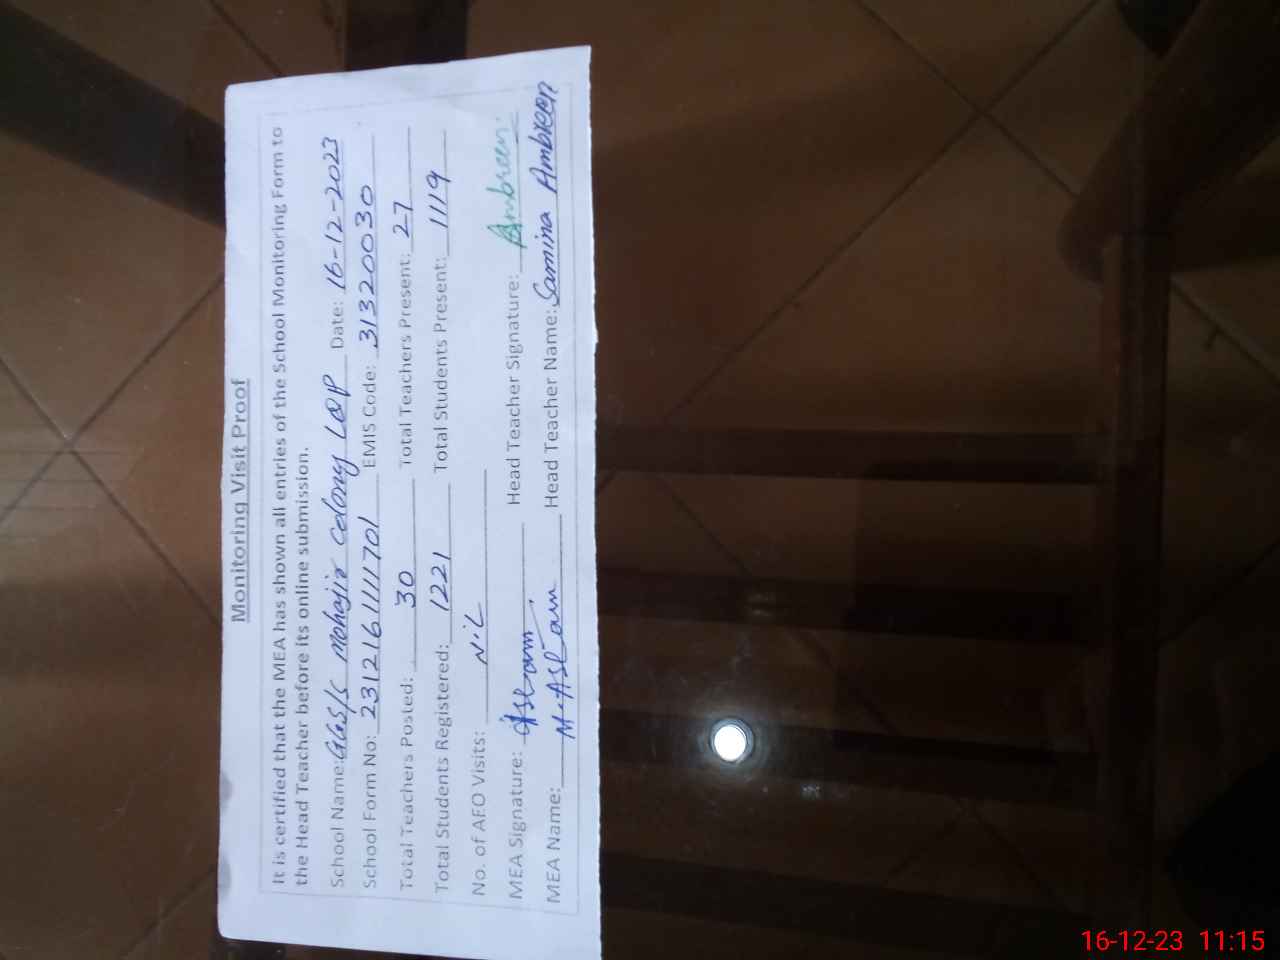 Monitoring Visit Proof
It is certified that the MEA has shown all entries of the School Monitoring Form to
the Head Teacher before its online submission.
School Name: GGS/S Mohajir Colony LQP Date: 16-12-2023
School Form No: 231216111701 EMIS Code: 31320030
Total Teachers Posted: 30 Total Teachers Present: 27
Total Students Registered: 1221 Total Students Present: 1119
No. of AEO Visits: Nil
MEA Signature: Aslam Head Teacher Signature: Ambreen.
MEA Name: M. Aslam Head Teacher Name: Samina Ambreen
16-12-23 11:15